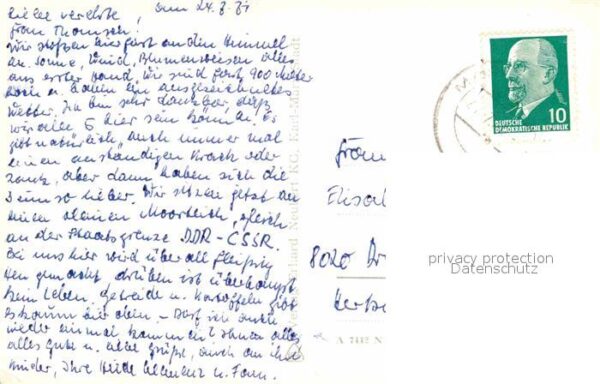 Liebe verehrte, am 24.8.71
Frau Thomsen!
Wir stoßen hier fast an den Himmel
an. Sonne, Wind, Blumenwiesen alles
aus erster Hand. Wir sind fast 900 Meter
hoch u. haben ein ausgezeichnetes
Wetter. Ich bin sehr dankbar, daß
wir alle 6 hier sein können. Es
gibt natürlich auch immer mal
einen anständigen Krach oder
Zank, aber dann haben sich die
um so lieber. Wir sitzen jetzt an
einem kleinen Moorteich, gleich
an der Staatsgrenze DDR-ČSSR.
Bei uns hier wird überall fleißig
Heu gemacht, drüben ist überhaupt
kein Leben. Getreide u. Kartoffeln gibt
es kaum hier oben - Darf ich auch
wieder einmal kommen? Ihnen alles
alles Gute u. liebe Grüße, auch an ihre
Kinder, Ihre Heide u. Fam.
10
DEUTSCHE
DEMOKRATISCHE REPUBLIK
Frau
8020
privacy protection
Datenschutz
A 7412 N